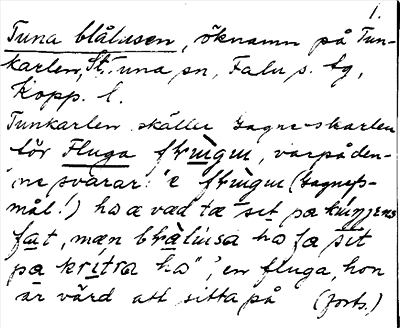 1.
Tuna blålusen, öknamn på Tun-
karlen, St. Tuna sn, Falu s. lg,
Kopp. l.
Tunkarlen skäller Sagneskarlen
för Fluga fɫugu, varpå den-
ne svarar: "e fɫugu (Sagnes-
mål!) ha a væd ta sit pa kuŋŋens
fat, mæn blalusa ha fa sit
pa kritra ha", en fluga, hon
är värd att sitta på (forts.)